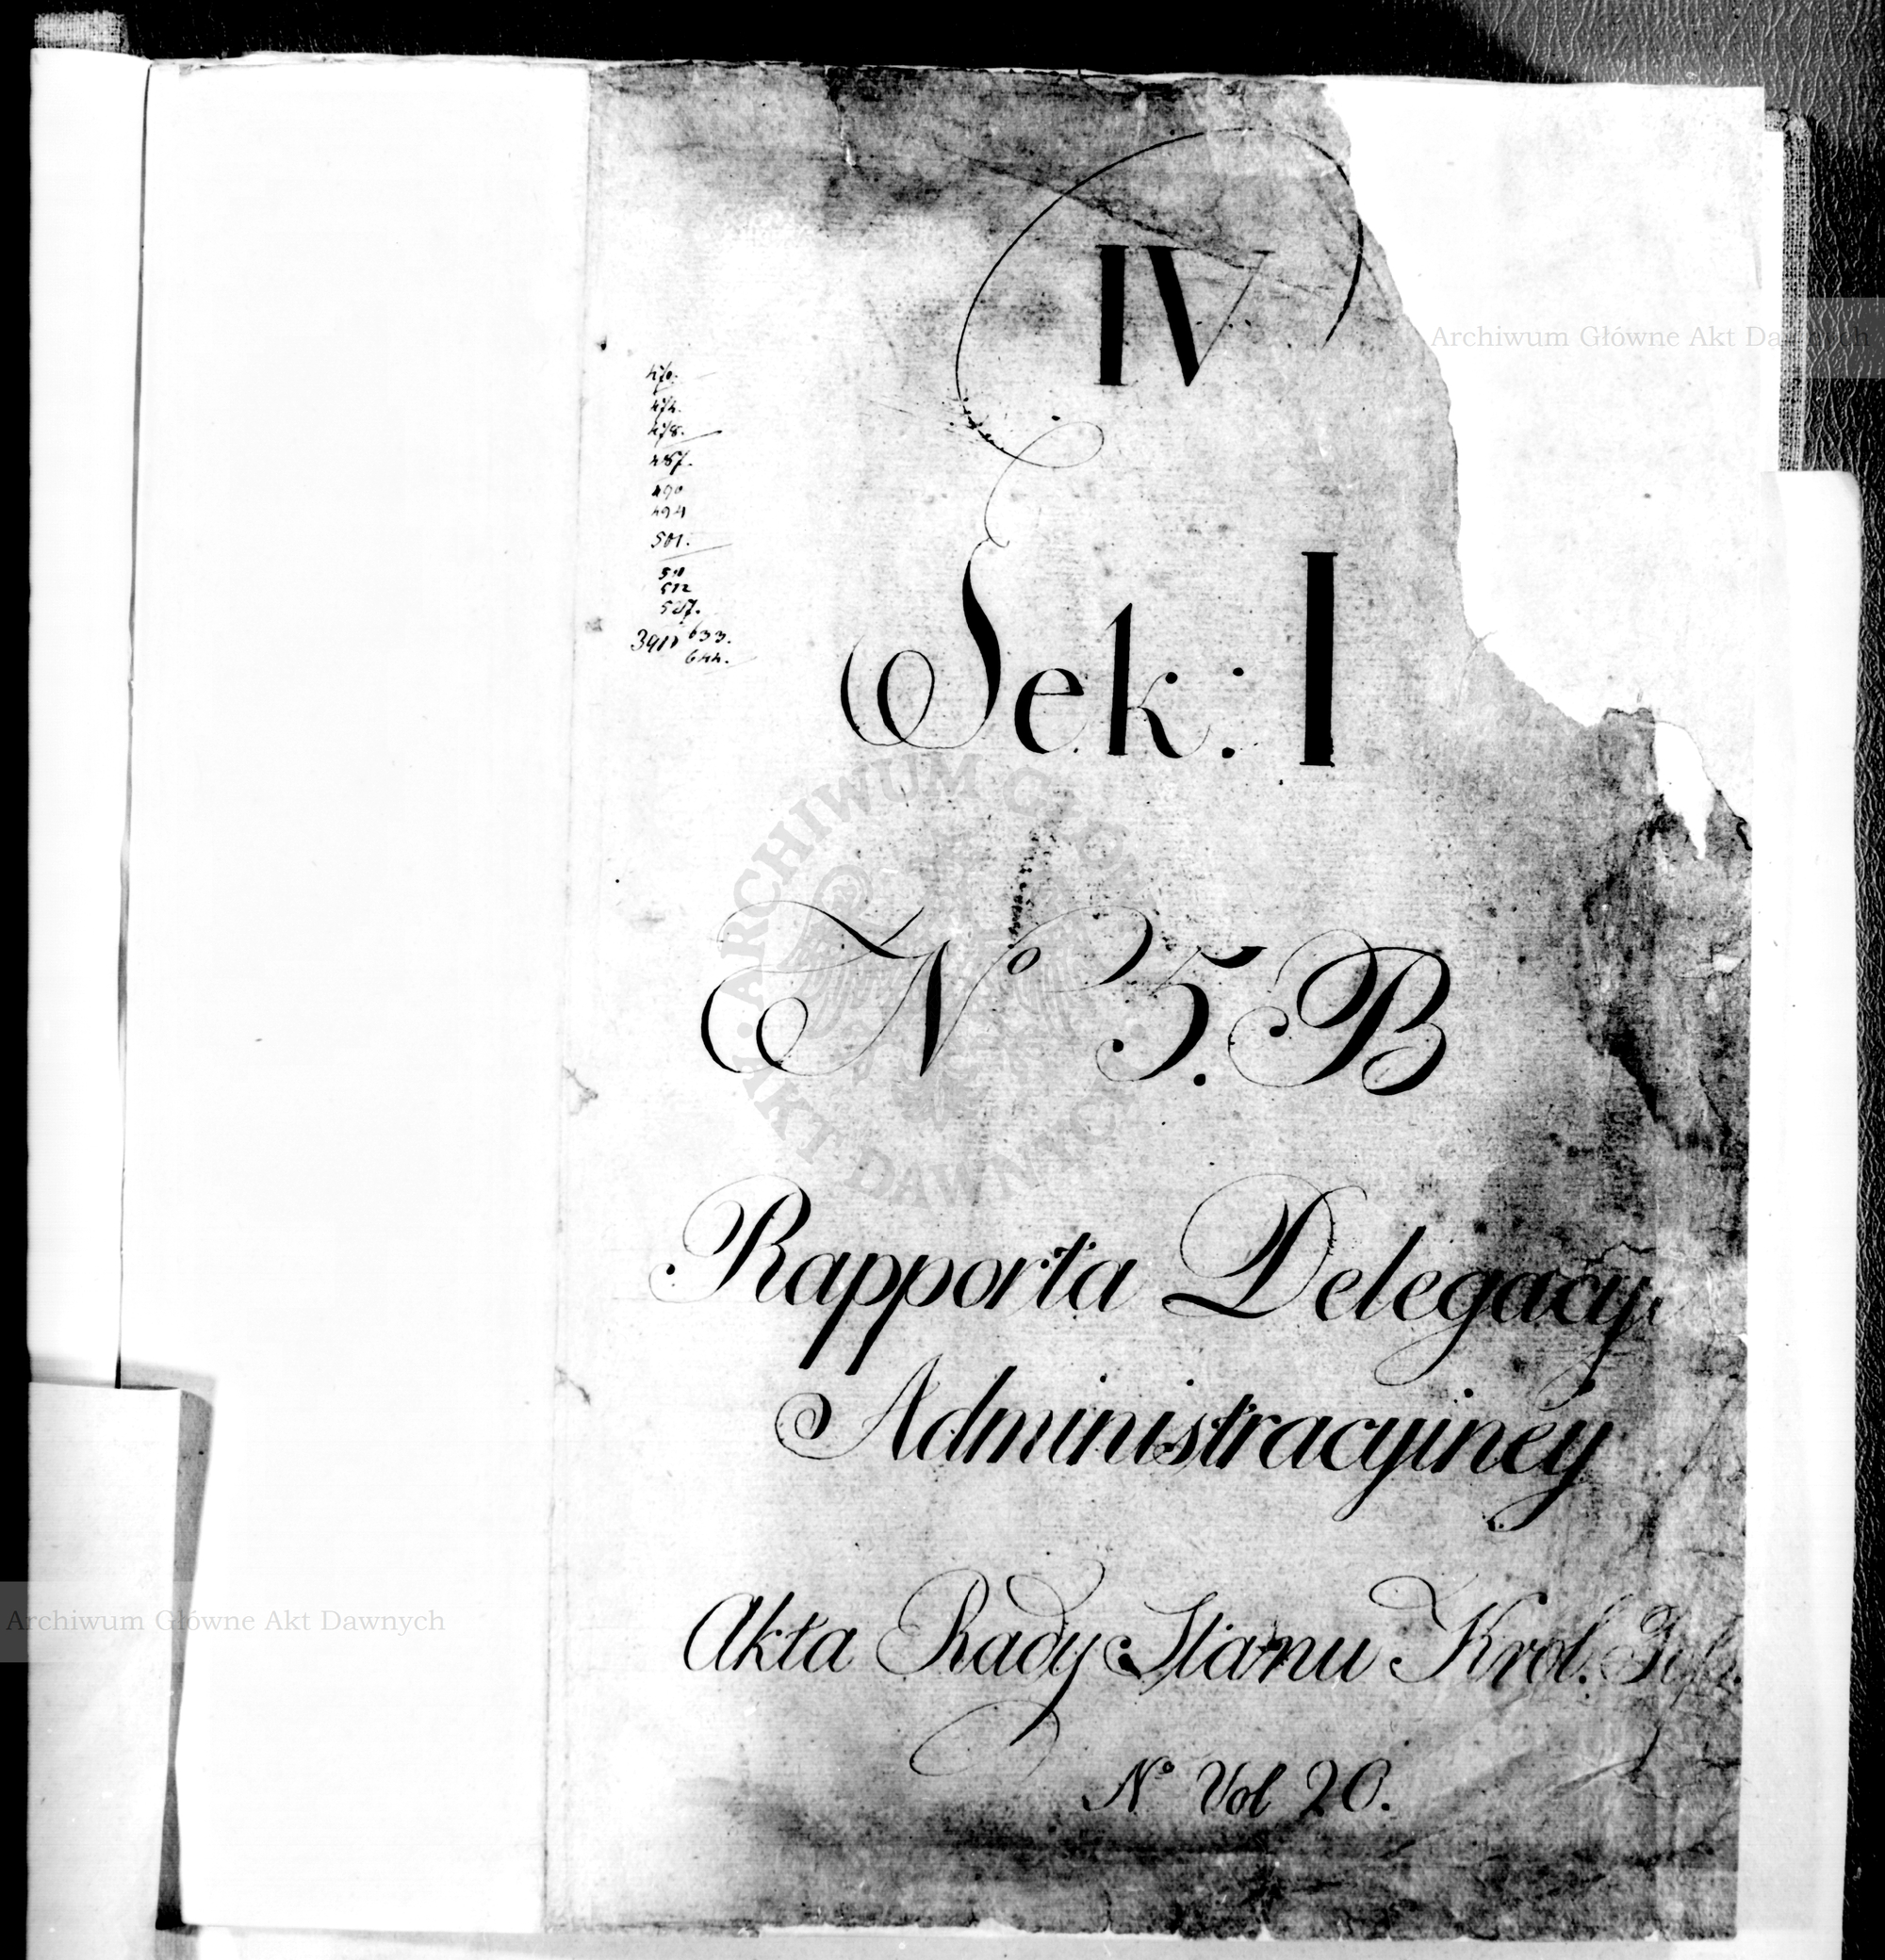 IV
470.
474.
478.
487.
490
494
501.
511
512
527.
3911 633.
644.
Sek: I
No 5. B
Rapporta Delegacyi
Administracyiney
Akta Rady Stanu Krol.
No Vol 20.
Archiwum Główne Akt Dawnych
ARCHIWUM GŁÓWNE AKT DAWNYCH
Archiwum Główne Akt Dawnych